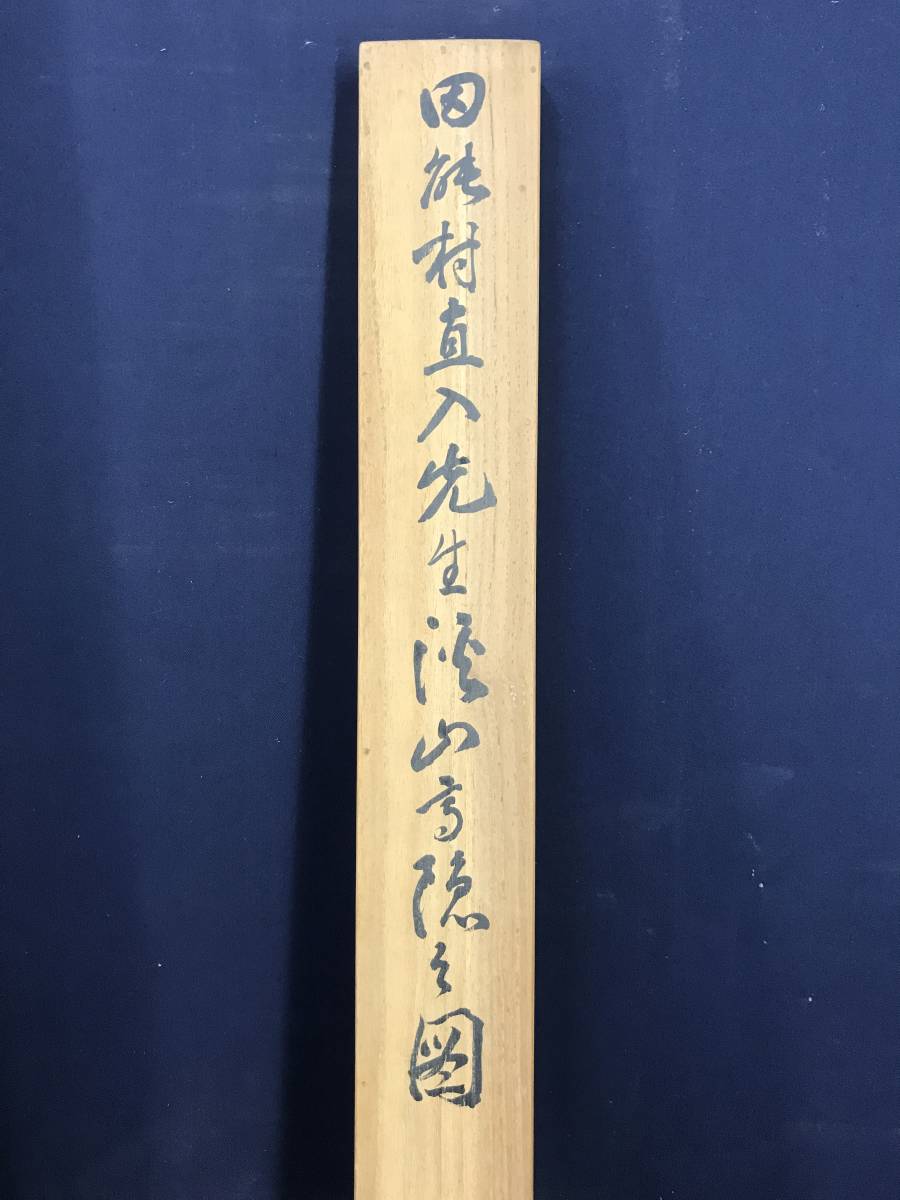 田能村直入先生渓山高隠之図